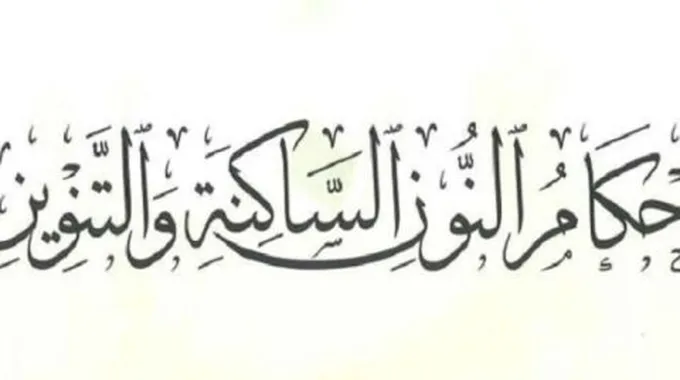 حكامُ النُّونِ السَّاكِنَةِ وَالتَّنْوِينِ